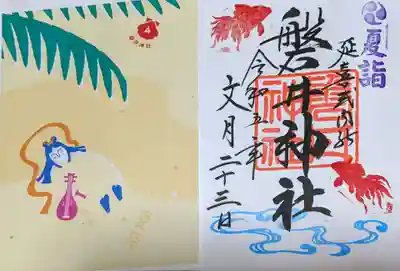 4
磐井神社
夏詣
延喜式内社
磐井神社
令和五年
文月二十三日